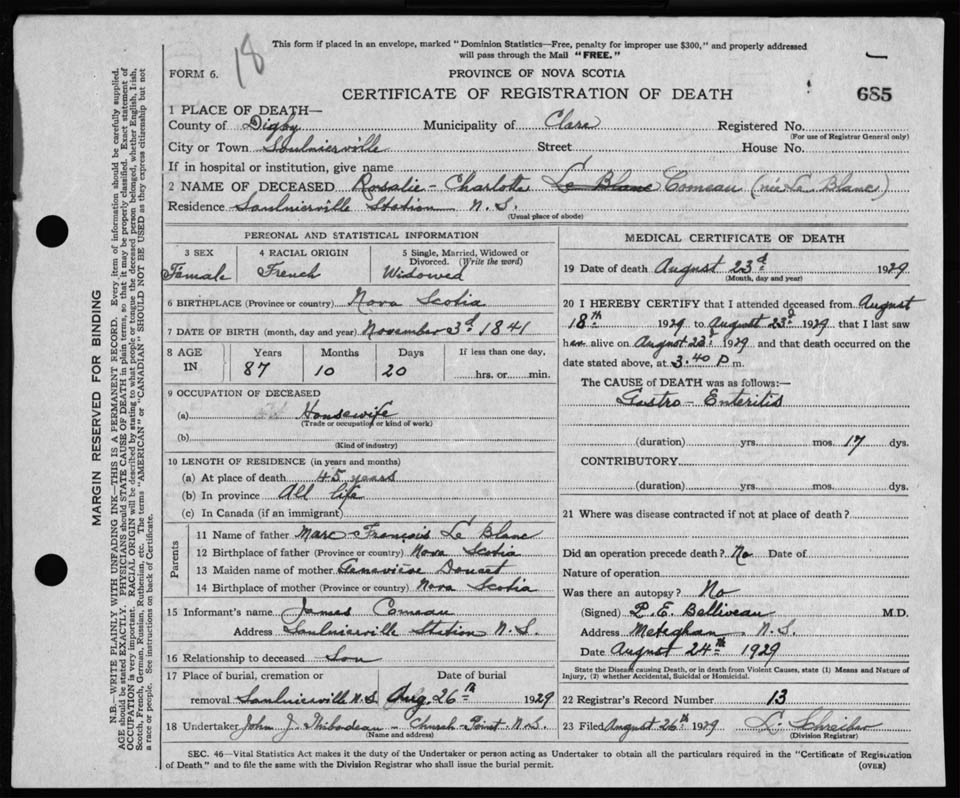 18
This form if placed in an envelope, marked "Dominion Statistics—Free, penalty for improper use $300," and properly addressed
will pass through the Mail "FREE."
FORM 6.
PROVINCE OF NOVA SCOTIA
CERTIFICATE OF REGISTRATION OF DEATH
685
1 PLACE OF DEATH—
County of Digby Municipality of Clare Registered No.
(For use of Registrar General only)
City or Town Saulnierville Street House No.
If in hospital or institution, give name
2 NAME OF DECEASED Rosalie - Charlotte Le Blanc Comeau (née Le Blanc)
Residence Saulnierville Station N.S.
(Usual place of abode)
PERSONAL AND STATISTICAL INFORMATION
3 SEX 4 RACIAL ORIGIN 5 Single, Married, Widowed or
Divorced. (Write the word)
Female French Widowed
6 BIRTHPLACE (Province or country) Nova Scotia
7 DATE OF BIRTH (month, day and year) November 3d 1841
8 AGE IN Years Months Days If less than one day,
87 10 20 hrs. or min.
9 OCCUPATION OF DECEASED
(a) Housewife
(Trade or occupation or kind of work)
(b)
(Kind of industry)
10 LENGTH OF RESIDENCE (in years and months)
(a) At place of death 45 years
(b) In province All life
(c) In Canada (if an immigrant)
Parents
11 Name of father Marc François Le Blanc
12 Birthplace of father (Province or country) Nova Scotia
13 Maiden name of mother Genevieve Doucet
14 Birthplace of mother (Province or country) Nova Scotia
15 Informant's name James Comeau
Address Saulnierville Station N.S.
16 Relationship to deceased Son
17 Place of burial, cremation or Date of burial
removal Saulnierville N.S Aug. 26th 1929
18 Undertaker John J. Thibodeau - Church Point N.S.
(Name and address)
MEDICAL CERTIFICATE OF DEATH
19 Date of death August 23d 1929
(Month, day and year)
20 I HEREBY CERTIFY that I attended deceased from August
18th 1929 to August 23d 1929 that I last saw
her alive on August 23d 1929 and that death occurred on the
date stated above, at 3.40 P m.
The CAUSE OF DEATH was as follows:—
Gastro - Enteritis
(duration) yrs. mos. 17 dys.
CONTRIBUTORY
(duration) yrs. mos. dys.
21 Where was disease contracted if not at place of death?
Did an operation precede death? No Date of
Nature of operation
Was there an autopsy? No
(Signed) P. E. Belliveau M.D.
Address Meteghan N.S.
Date August 24th 1929
State the Disease causing Death, or in death from Violent Causes, state (1) Means and Nature of
Injury, (2) whether Accidental, Suicidal or Homicidal.
22 Registrar's Record Number 13
23 Filed August 26th 1929 L. Schreiber
(Division Registrar)
SEC. 46—Vital Statistics Act makes it the duty of the Undertaker or person acting as Undertaker to obtain all the particulars required in the "Certificate of Registration
of Death" and to file the same with the Division Registrar who shall issue the burial permit.
(OVER)
MARGIN RESERVED FOR BINDING
N.B.—WRITE PLAINLY WITH UNFADING INK—THIS IS A PERMANENT RECORD. Every item of information should be carefully supplied.
AGE should be stated EXACTLY. PHYSICIANS should STATE CAUSE OF DEATH in plain terms, so that it may be properly classified. Exact statement of
OCCUPATION is very important. RACIAL ORIGIN will be described by stating to what people or tongue the deceased person belonged, whether English, Irish,
Scotch, French, German, Russian, Ruthenian, etc. The terms "AMERICAN" or "CANADIAN" SHOULD NOT BE USED as they express citizenship but not
a race or people. See instructions on back of Certificate.